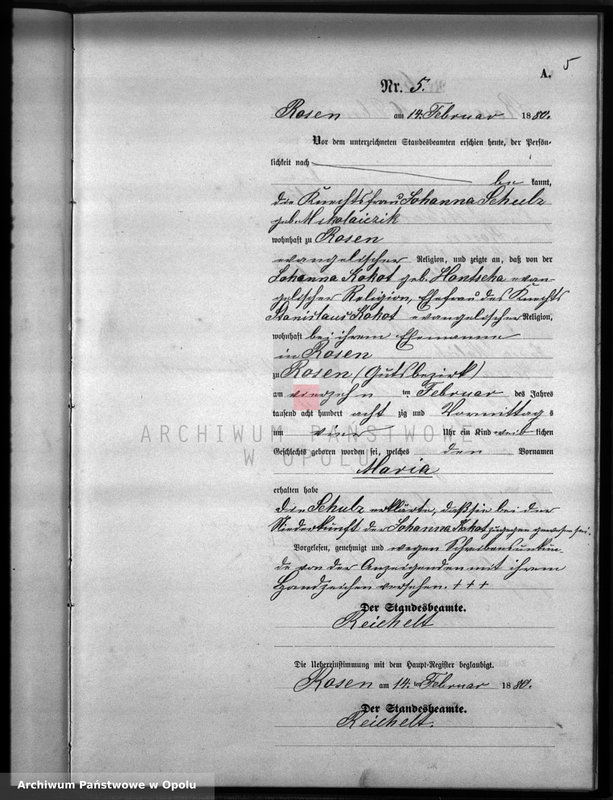 5
A.
Nr. 5.
Rosen am 14. Februar 1880.
Vor dem unterzeichneten Standesbeamten erschien heute, der Persön-
lichkeit nach
be kannt,
die Knechtsfrau Johanna Schulz
geb. Mikolaiczik
wohnhaft zu Rosen
evangelischer Religion, und zeigte an, daß von der
Johanna Kokot geb. Hontscha evan-
gelischer Religion, Ehefrau des Knechts
Stanislaus Kokot evangelischer Religion,
wohnhaft bei ihrem Ehemanne
in Rosen
zu Rosen (Gutsbezirk)
am vierzehn ten Februar des Jahres
tausend acht hundert acht zig und Vormittag s
um vier Uhr ein Kind weib lichen
Geschlechts geboren worden sei, welches den Vornamen
Maria
erhalten habe
Die Schulz erklärte, daß sie bei der
Niederkunft der Johanna Kokot zugegen gewesen sei.
Vorgelesen, genehmigt und wegen Schreibensunkun-
de von der Anzeigenden mit ihrem
Handzeichen versehen. +++
Der Standesbeamte.
Reichelt
Die Uebereinstimmung mit dem Haupt-Register beglaubigt.
Rosen am 14. ten Februar 1880.
Der Standesbeamte.
Reichelt.
ARCHIWUM PAŃSTWOWE
W OPOLU
Archiwum Państwowe w Opolu